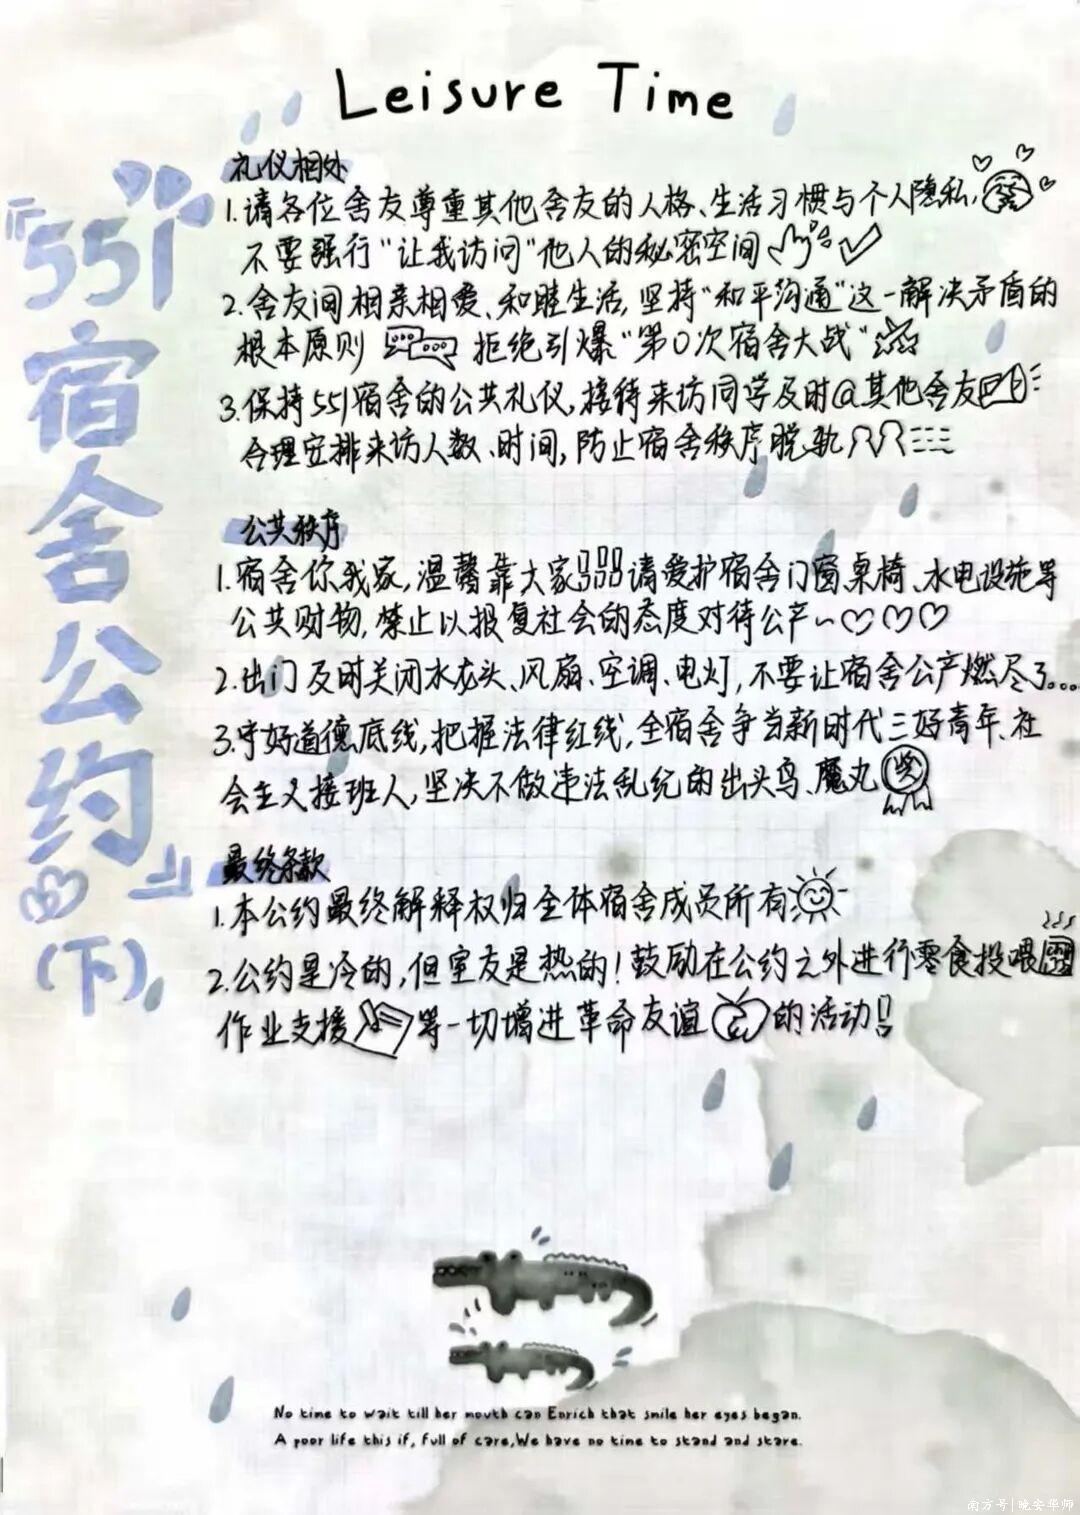 Leisure Time
『551宿舍公约』(下)
礼仪相处
1.请各位舍友尊重其他舍友的人格、生活习惯与个人隐私,
不要强行"让我访问"他人的秘密空间
2.舍友间相亲相爱、和睦生活,坚持"和平沟通"这一解决矛盾的
根本原则 拒绝引爆"第0次宿舍大战"
3.保持551宿舍的公共礼仪,接待来访同学及时@其他舍友
合理安排来访人数、时间,防止宿舍秩序脱轨
公共秩序
1.宿舍你我家,温馨靠大家!!!请爱护宿舍门窗桌椅、水电设施等
公共财物,禁止以报复社会的态度对待公产~♡♡♡
2.出门及时关闭水龙头、风扇、空调、电灯,不要让宿舍公产燃尽了...
3.守好道德底线,把握法律红线,全宿舍争当新时代三好青年、社
会主义接班人,坚决不做违法乱纪的出头鸟、魔丸 奖
最终条款
1.本公约最终解释权归全体宿舍成员所有
2.公约是冷的,但室友是热的!鼓励在公约之外进行零食投喂
作业支援 等一切增进革命友谊 的活动!
No time to wait till her mouth can Enrich that smile her eyes began.
A poor life this if, full of care,We have no time to stand and stare.
南方号|晚安华师